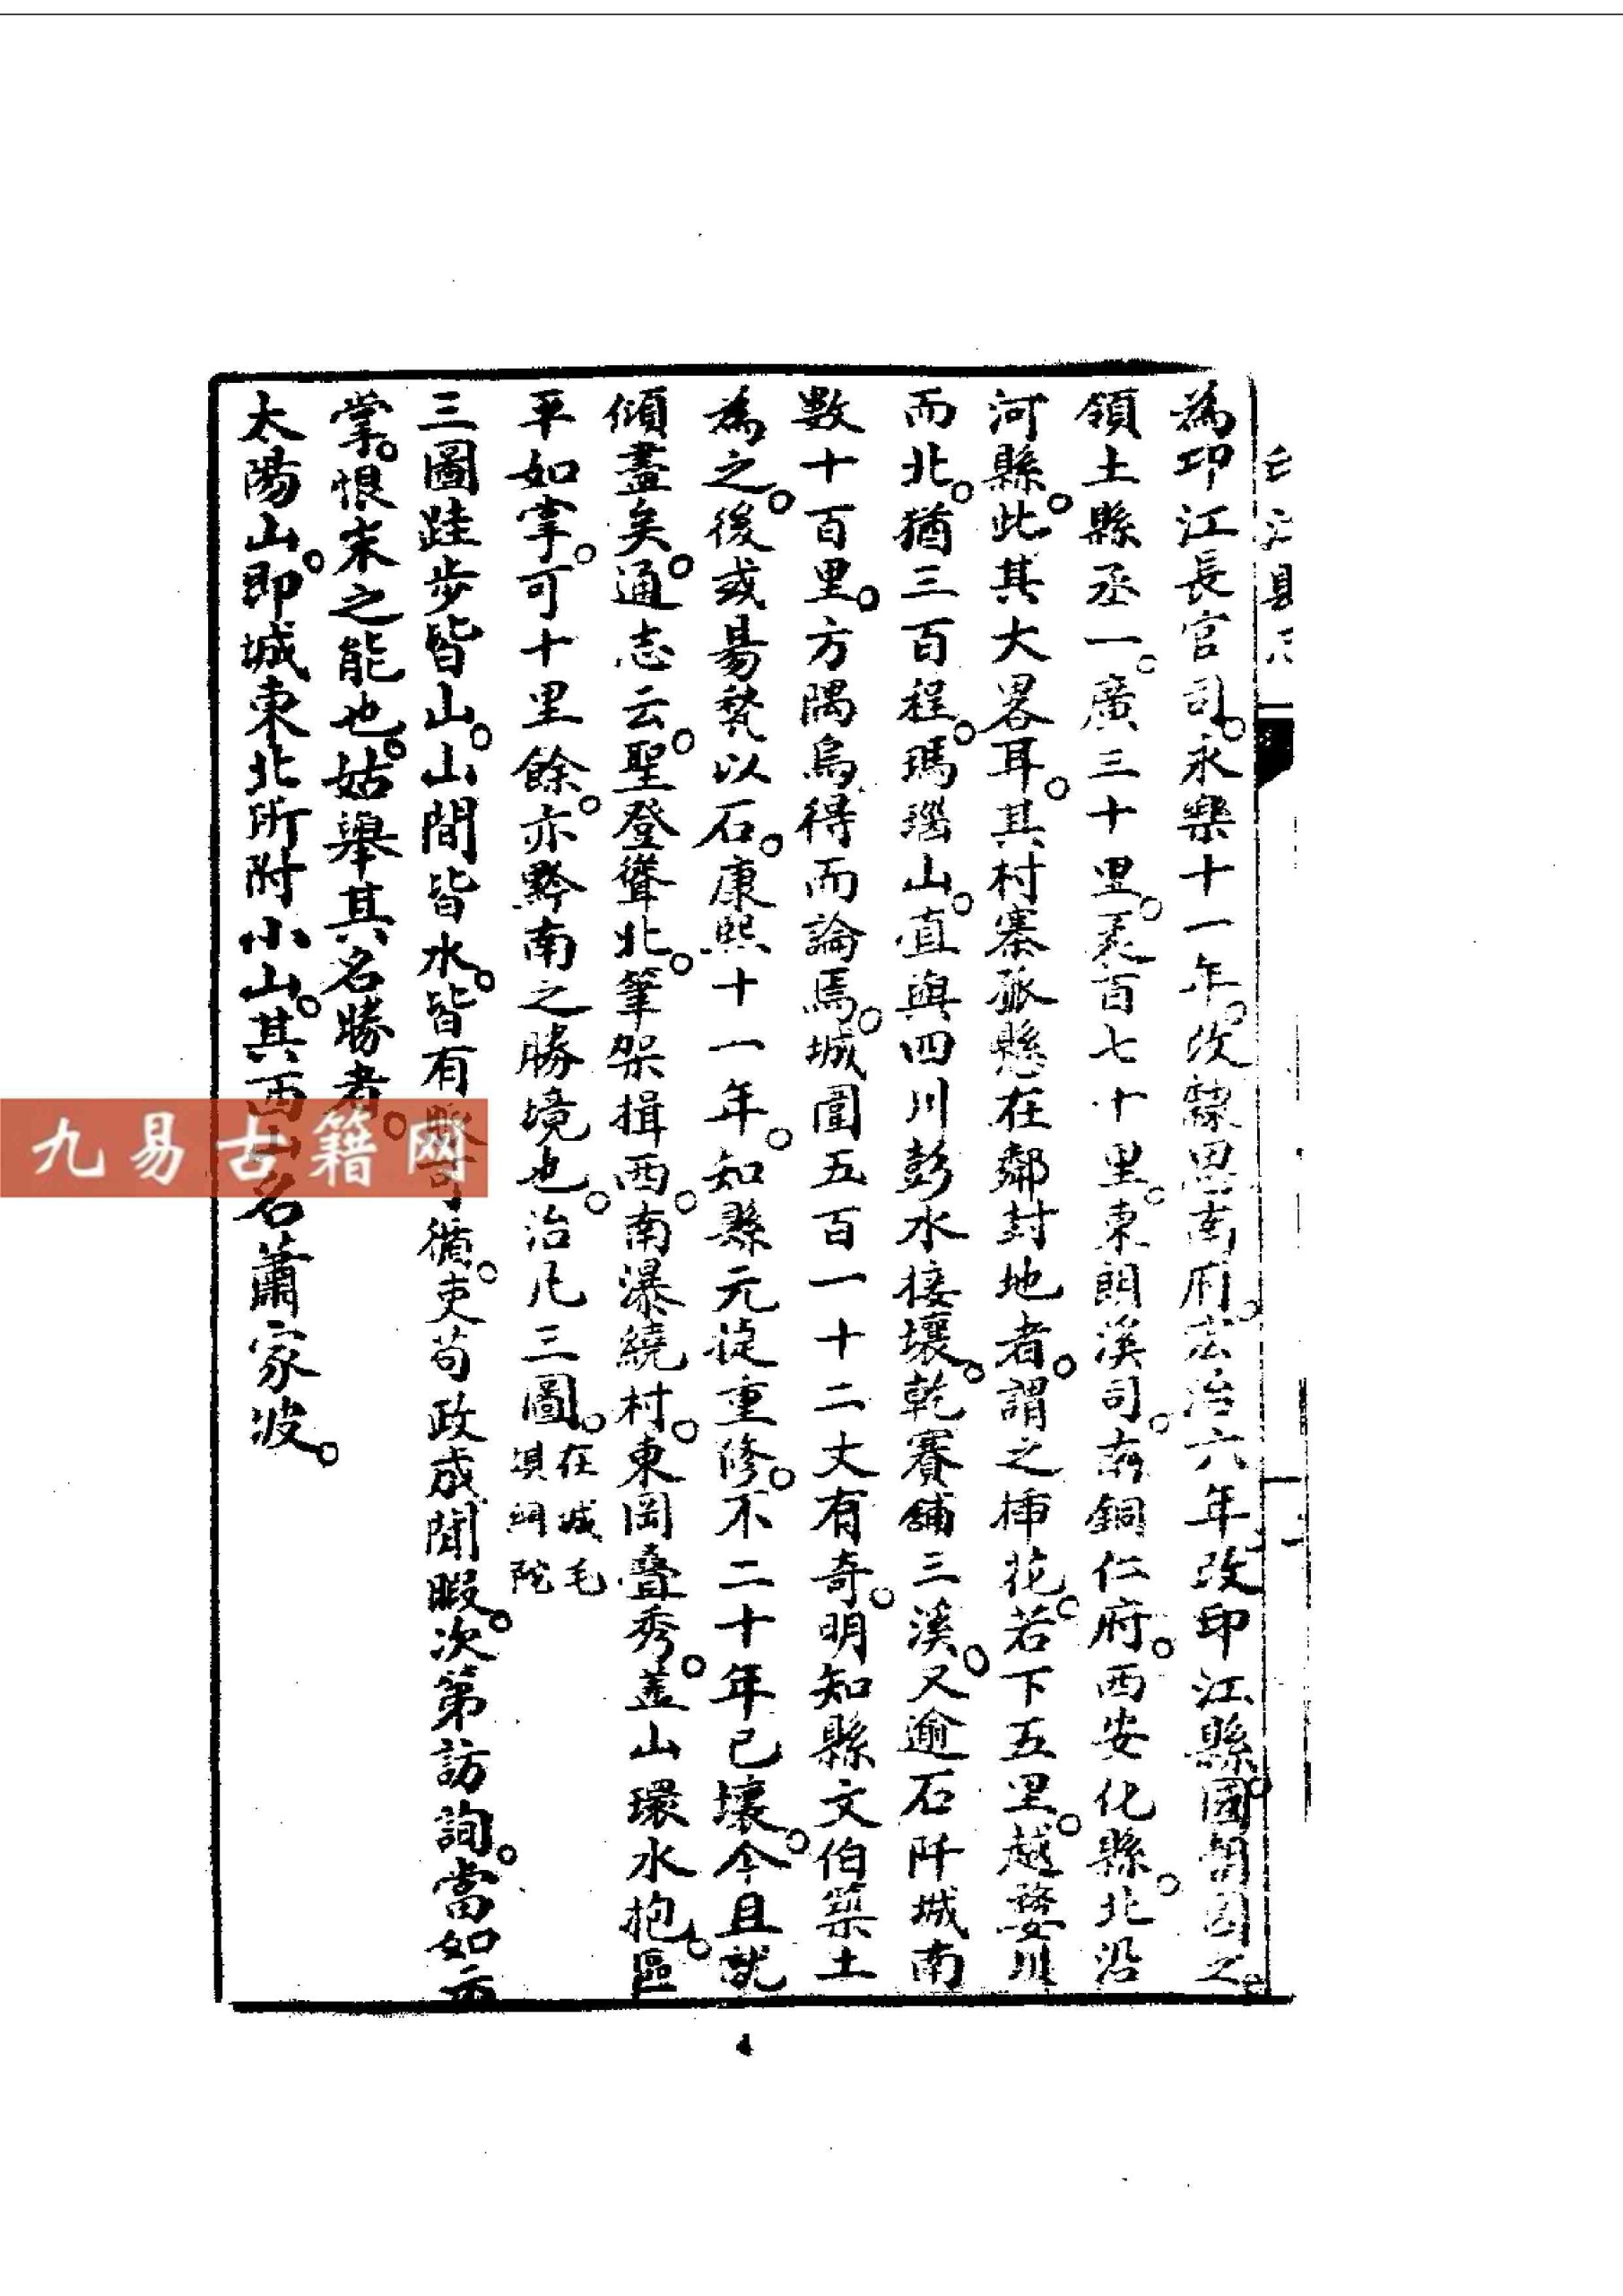 為卭江長官司。永樂十一年。改隸思南府。宏治六年改印江縣。國朝因之。
領土縣丞一。廣三十里。袤百七十里。東朗溪司。南銅仁府。西安化縣。北沿
河縣。此其大畧耳。其村寨孤懸在鄰封地者。謂之插花。若下五里。越婺川
而北。猶三百程。瑪瑙山。直與四川彭水接壤。乾賽舖三溪。又逾石阡城南
數十百里。方隅烏得而論焉。城圍五百一十二丈有奇。明知縣文伯築土
為之。後或易甃以石。康熙十一年。知縣元㨗重修。不二十年已壞。今且就
傾盡矣。通志云。聖登聳北。筆架揖西。南瀑繞村。東岡叠秀。盖山環水抱。區
平如掌。可十里餘。亦黔南之勝境也。治凡三圖。在城毛
垻綱陀
三圖跬步皆山。山間皆水。皆有 可循。吏苟政成聞暇。次第訪詢。當如示
掌。恨末之能也。姑舉其名勝者。
太陽山。即城東北所附小山。其西山名蕭家坡。
九易古籍网
4